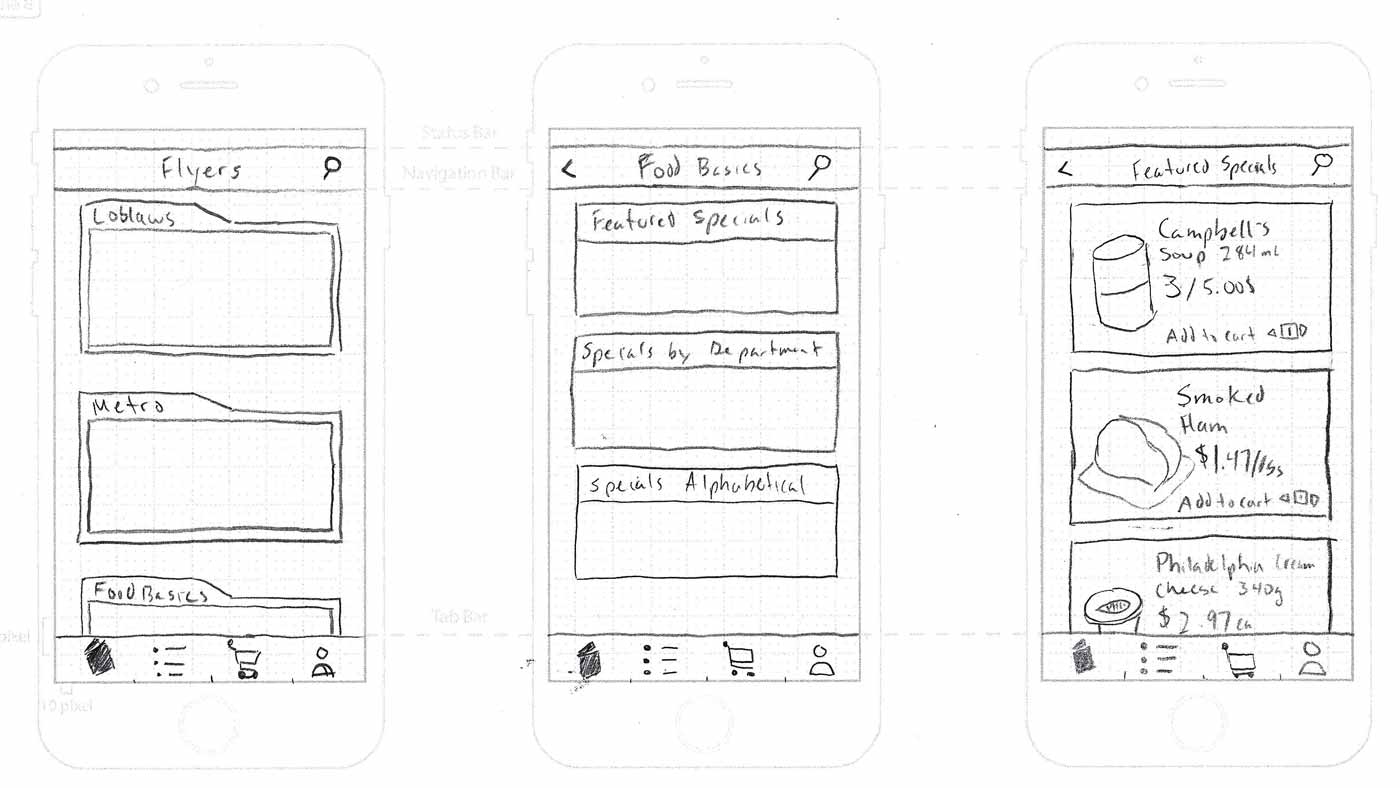 Flyers
Loblaws
Metro
Food Basics
10 pixel
pixel
Status Bar
Navigation Bar
Tab Bar
< Food Basics
Featured Specials
Specials by Department
Specials Alphabetical
< Featured Specials
Campbell's
Soup 284 mL
3/5.00$
Add to cart 1
Smoked
Ham
$1.47/lbs
Add to cart
Philadelphia Cream
cheese 340g
$2.97 ea